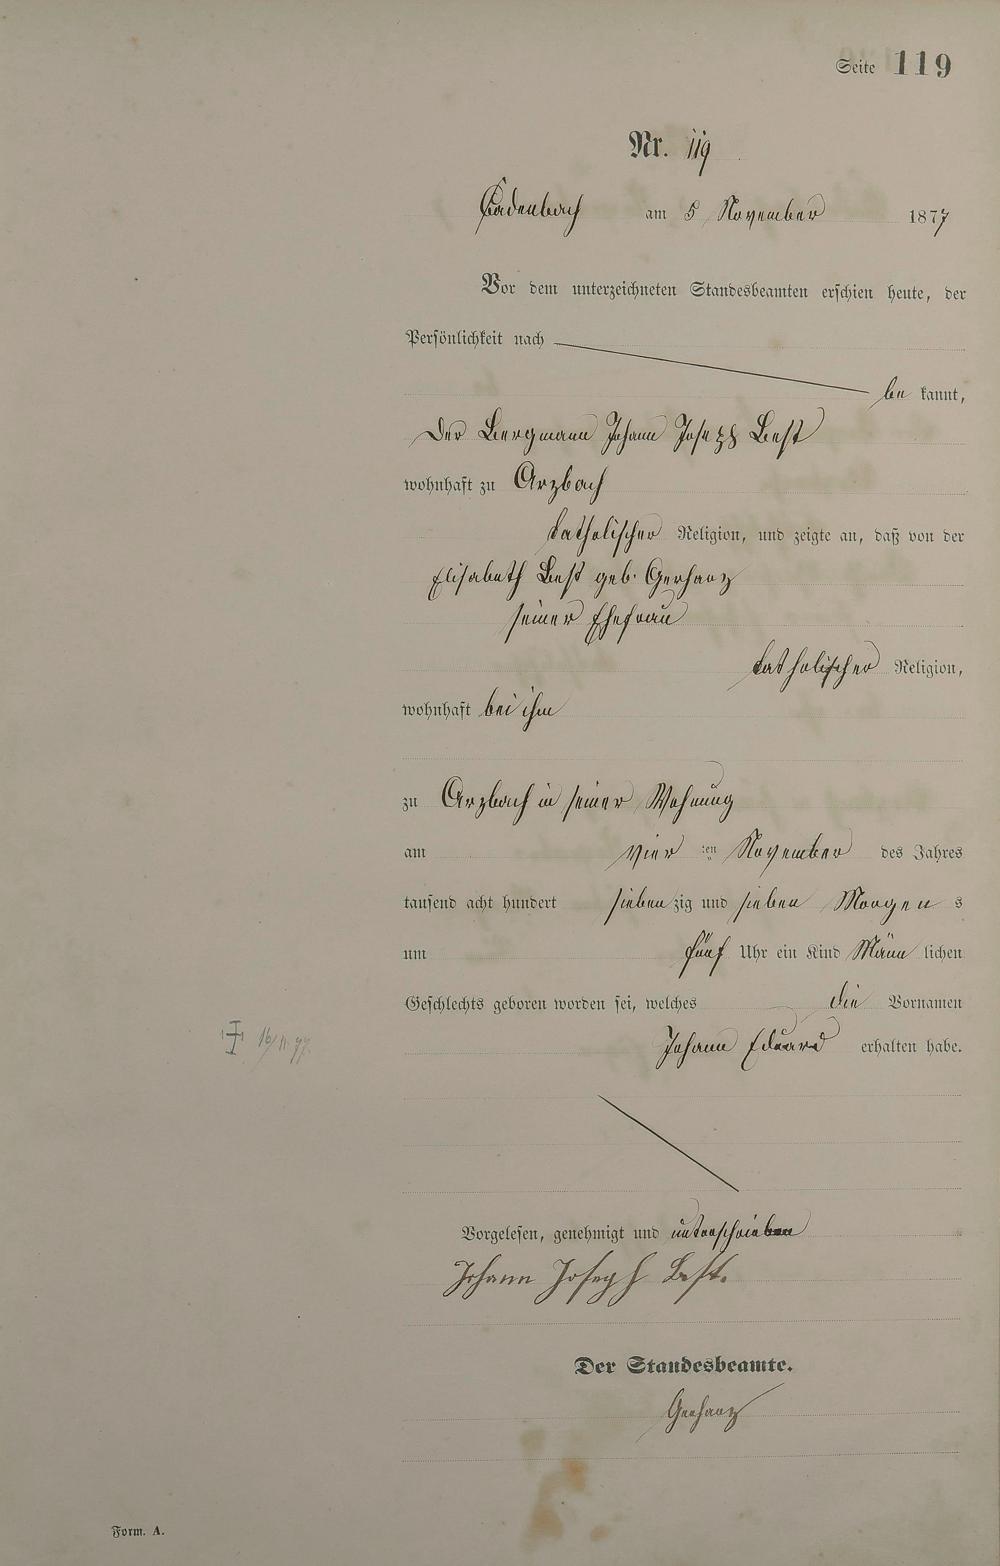 Seite 119
Nr. 119
Cadenbach am 5 November 1877
Vor dem unterzeichneten Standesbeamten erschien heute, der
Persönlichkeit nach
be kannt,
der Bergmann Johann Joseph Best
wohnhaft zu Arzbach
katholischer Religion, und zeigte an, daß von der
Elisabeth Best geb. Gerharz
seiner Ehefrau
katholischer Religion,
wohnhaft bei ihm
zu Arzbach in seiner Wohnung
am vier ten November des Jahres
tausend acht hundert sieben zig und sieben Morgen s
um fünf Uhr ein Kind Männ lichen
Geschlechts geboren worden sei, welches die Vornamen
Johann Eduard erhalten habe.
16/11.77.
Vorgelesen, genehmigt und unterschrieben
Johann Joseph Best.
Der Standesbeamte.
Gerharz
Form. A.